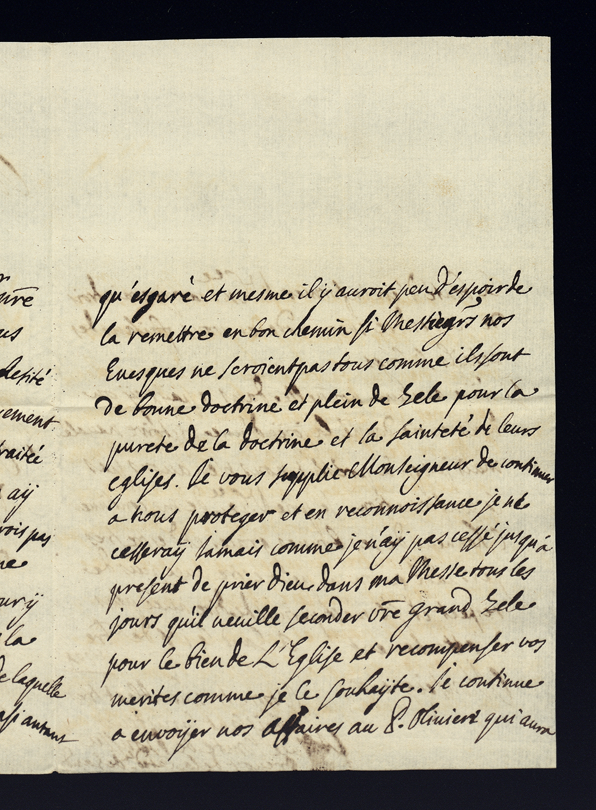 ure
us
delité
gement
traité
aÿ
vois pas
ne
ury
la
de laquelle
autant
qu'esgaré et mesme il ÿ auroit peu d'espoir de
la remettre en bon chemin si Messieigrs nos
Euesques ne seroient pas tous comme ils sont
De bonne doctrine et plein de Zele pour la
pureté de la doctrine et la sainteté de leurs
eglises. Je vous supplie Monseigneur de continuer
a nous proteger et en reconnoissance je ne
cesseray Jamais comme je n'aÿ pas cessé jusqu'a
present de prier Dieu dans ma Messe tous les
jours qu'il veuille seconder vre grand Zele
pour le bien de L'Eglise et recompenser vos
merites comme je le souhaÿte. Je continue
a envoÿer nos affaires au P. Olivieri qui aura